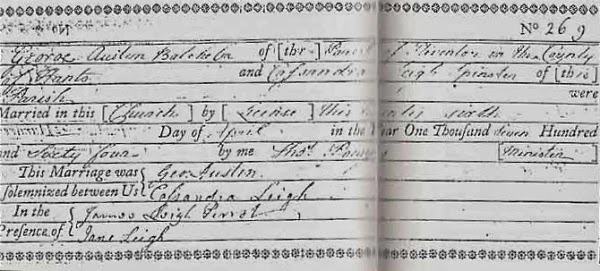 No 269
George Austen Batchelor of [the] Parish of Steventon in the County
of Hants and Cassandra Leigh Spinster of [this]
Parish were
Married in this [Church] by [License] this twenty sixth
Day of April in the Year One Thousand seven Hundred
and Sixty four by me Thos. Powys [Minister]
This Marriage was { Geo: Austen
solemnized between Us { Cassandra Leigh
In the { James Leigh Perrot
Presence of { Jane Leigh